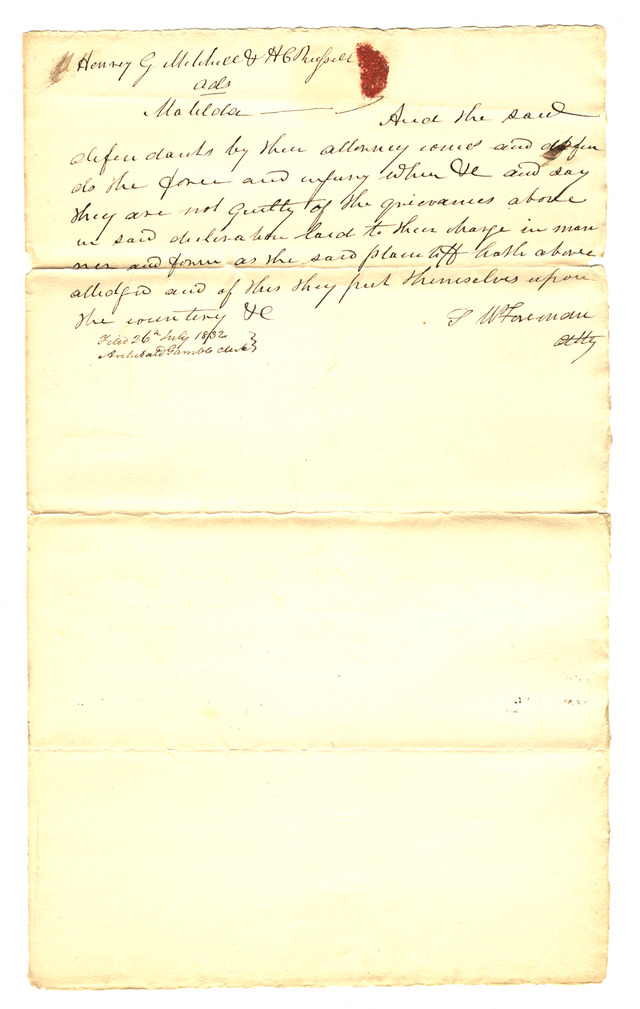 Henry G Mitchell & H C Russell
ads
Matilda
And the said
defendants by their attorney come and defen
ds the force and injury when &c and say
they are not guilty of the grievances above
in said declaration laid to their charge in man
ner and form as the said plaintiff hath above
alledged and of this they put themselves upon
the country &c
S W Foreman
atty
Filed 26th July 1832
Archibald Gamble clerk